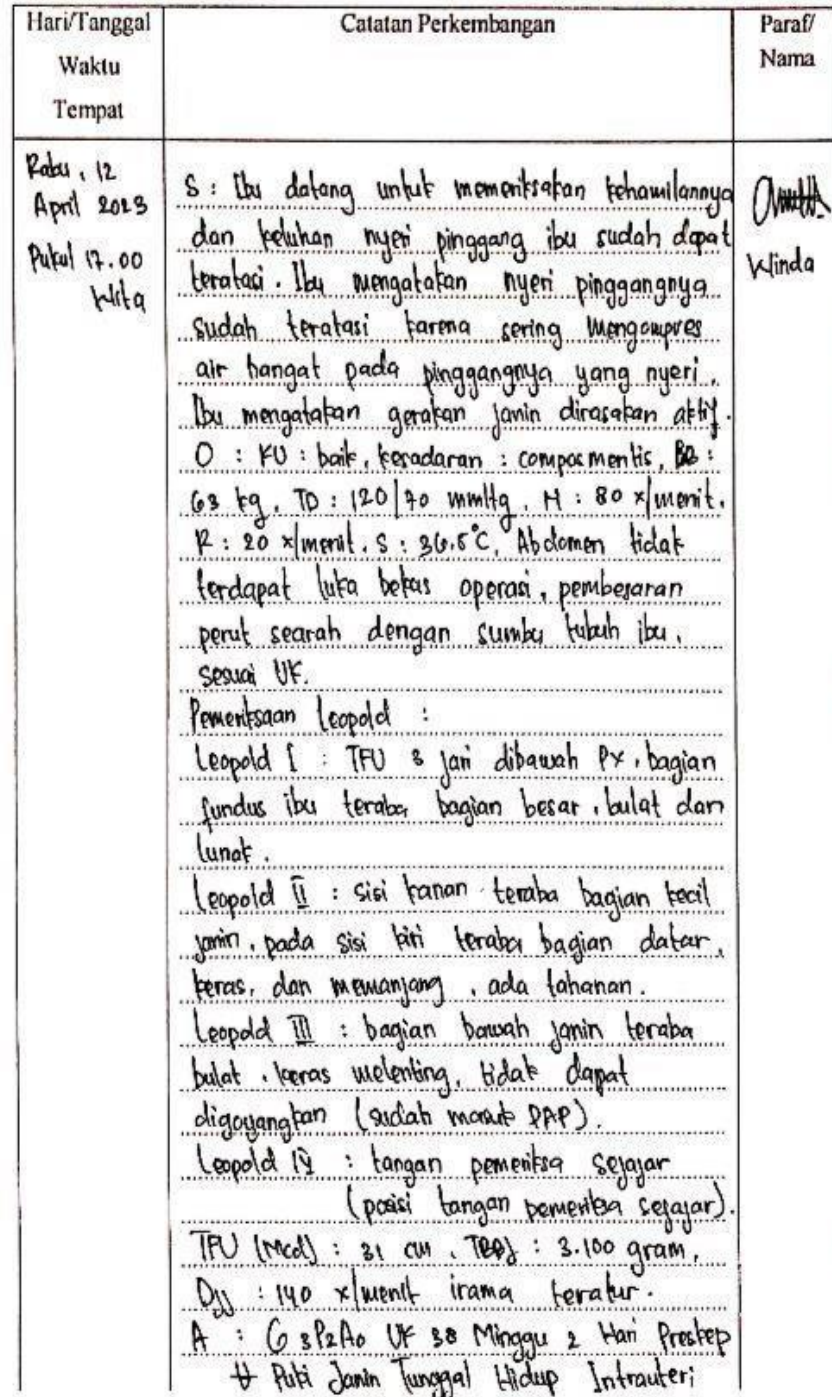 Hari/Tanggal
Waktu
Tempat
Catatan Perkembangan
Paraf/
Nama
Rabu, 12
April 2023
Pukul 17.00
Wita
S : Ibu datang untuk memeriksakan kehamilannya
dan keluhan nyeri pinggang ibu sudah dapat
teratasi. Ibu mengatakan nyeri pinggangnya
sudah teratasi karena sering mengompres
air hangat pada pinggangnya yang nyeri.
Ibu mengatakan gerakan janin dirasakan aktif.
O : KU : baik, kesadaran : composmentis, BB :
63 kg, TD : 120/70 mmHg, N : 80 x/menit.
R : 20 x/menit. S : 36.5°C, Abdomen tidak
terdapat luka bekas operasi, pembesaran
perut searah dengan sumbu tubuh ibu,
sesuai UK.
Pemeriksaan Leopold :
Leopold I : TFU 3 jari dibawah Px, bagian
fundus ibu teraba bagian besar, bulat dan
lunak.
Leopold II : sisi kanan teraba bagian kecil
janin, pada sisi kiri teraba bagian datar,
keras, dan memanjang, ada tahanan.
Leopold III : bagian bawah janin teraba
bulat, keras melenting, tidak dapat
digoyangkan (sudah masuk PAP).
Leopold IV : tangan pemeriksa sejajar
(posisi tangan pemeriksa sejajar).
TFU (Mcd) : 31 cm, TBBJ : 3.100 gram,
DJJ : 140 x/menit irama teratur.
A : G3P2A0 UK 38 Minggu 2 Hari Preskep
U Puki Janin Tunggal Hidup Intrauteri
Winda